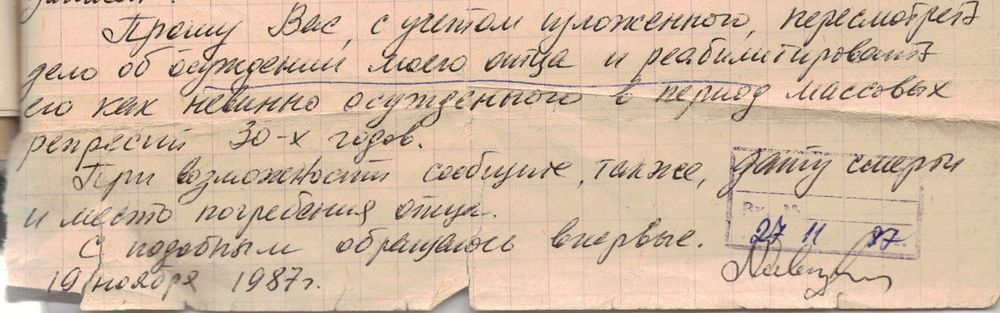 Прошу Вас, с учетом изложенного, пересмотреть
дело об осуждении моего отца и реабилитировать
его как невинно осужденного в период массовых
репрессий 30-х годов.
При возможности сообщите, также, дату смерти
и место погребения отца.
С подобным обращаюсь впервые.
Вх. №
27 11 87
19 ноября 1987г.